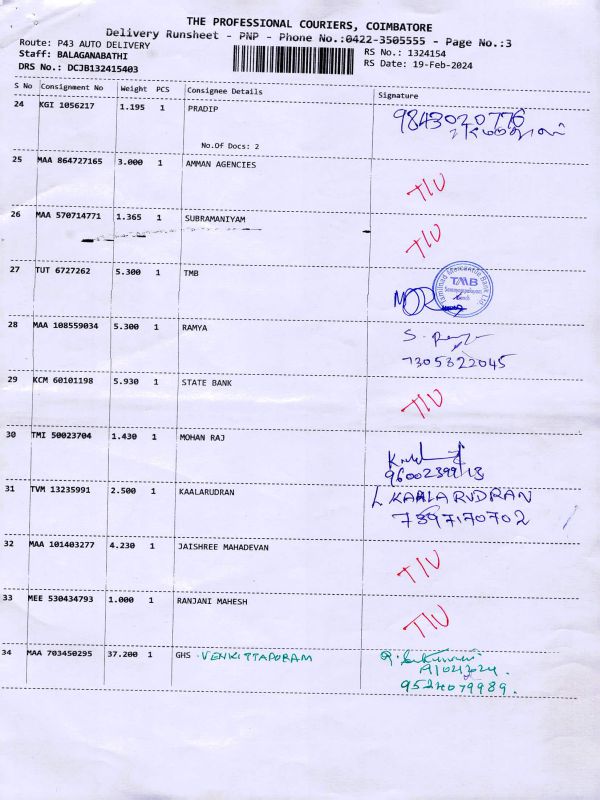 THE PROFESSIONAL COURIERS, COIMBATORE
Delivery Runsheet - PNP - Phone No.:0422-3505555 - Page No.:3
Route: P43 AUTO DELIVERY
RS No.: 1324154
Staff: BALAGANABATHI
RS Date: 19-Feb-2024
DRS No.: DCJB132415403
S No Consignment No Weight PCS Consignee Details Signature
24 KGI 1056217 1.195 1 PRADIP 9843020776
No.Of Docs: 2
25 MAA 864727165 3.000 1 AMMAN AGENCIES T/U
26 MAA 570714771 1.365 1 SUBRAMANIYAM T/U
27 TUT 6727262 5.300 1 TMB
Tamilnad Mercantile Bank Ltd.
TMB
28 MAA 108559034 5.300 1 RAMYA S.
7305322045
29 KCM 60101198 5.930 1 STATE BANK T/U
30 TMI 50023704 1.430 1 MOHAN RAJ
31 TVM 13235991 2.500 1 KAALARUDRAN L KAALARUDRAN
7397170702
32 MAA 101403277 4.230 1 JAISHREE MAHADEVAN T/U
33 MEE 530434793 1.000 1 RANJANI MAHESH T/U
34 MAA 703450295 37.200 1 GHS VENKITTAPURAM
9524079989.